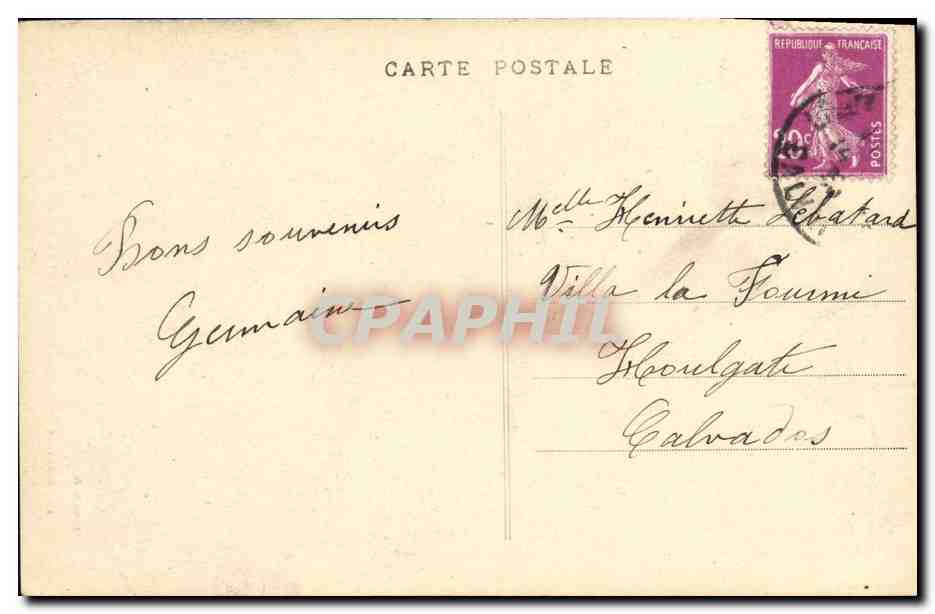 CARTE POSTALE
REPUBLIQUE FRANÇAISE
20c
POSTES
Bons souvenirs
Germaine
Melle Henriette Levatard
Villa la Fourmi
Houlgate
Calvados
CPAPHIL